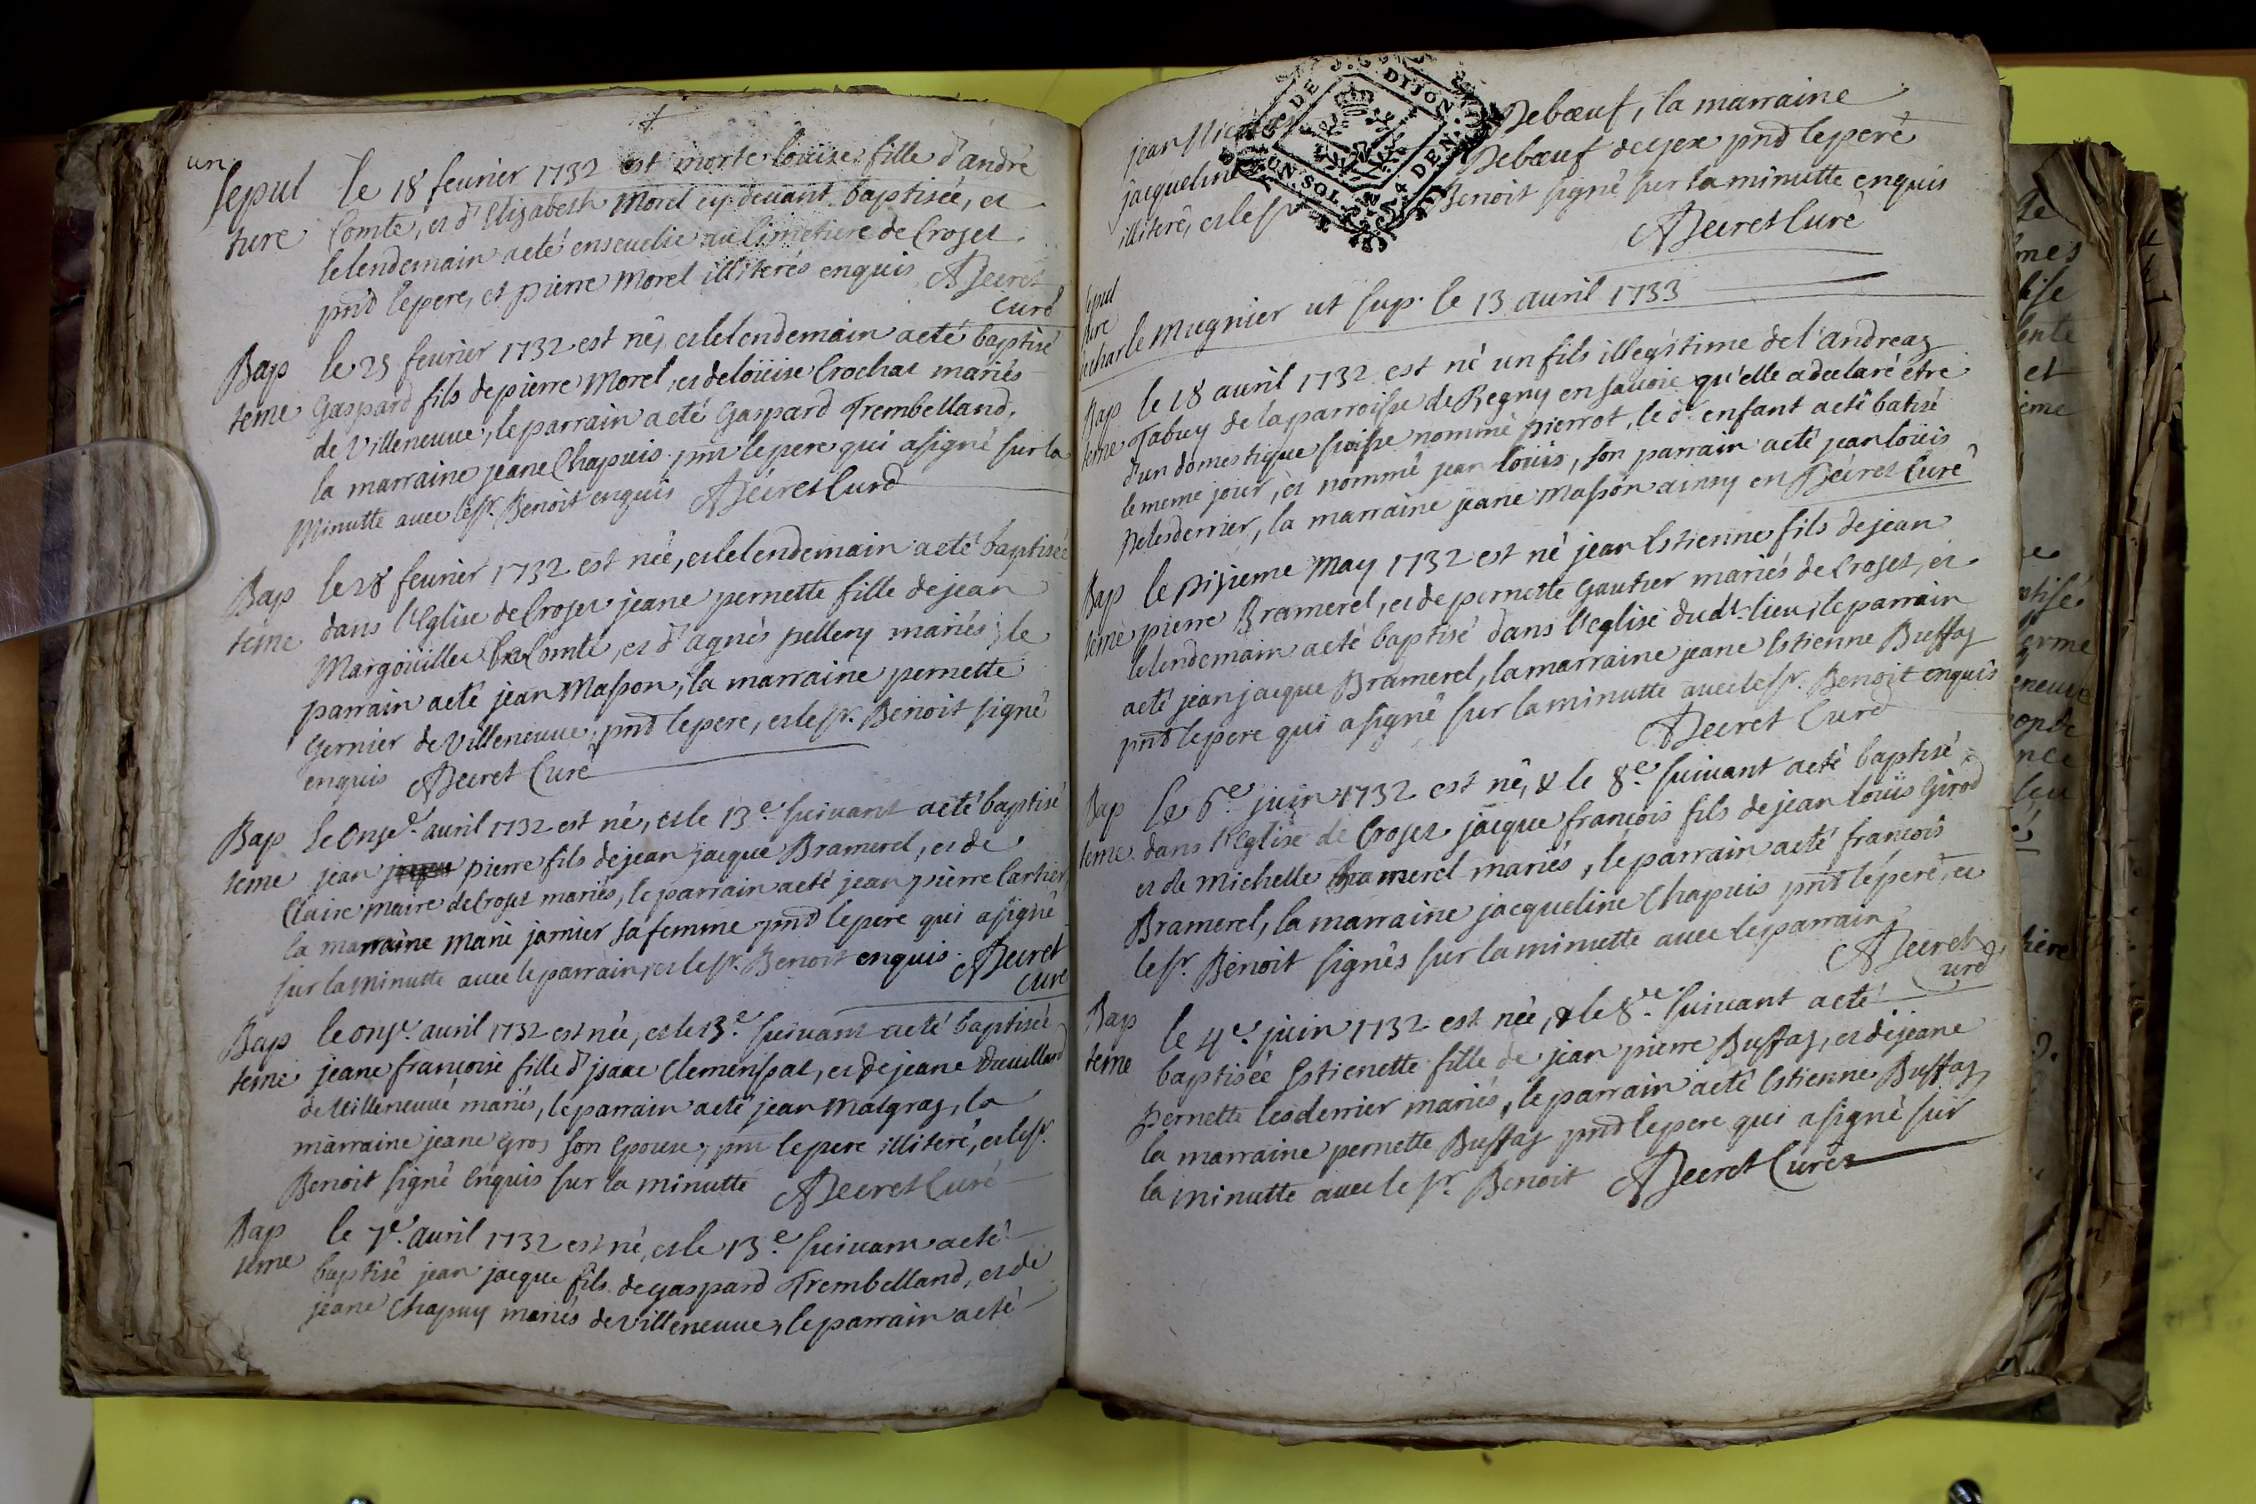 un
sepul le 18 feurier 1732 est morte loüise fille d'andré
ture Comte, et d'Elizabeth Morel cy devant baptisée, et
le lendemain a eté enseuelie au Cimetiere de Crozet
pnd le pere, et pierre Morel illiterés enquis ADecret
Curé
Bap le 25 feurier 1732 est né, et le lendemain a eté baptisé
teme Gaspard fils de pierre Morel, et de loüise Crochat mariés
de Villeneuue, le parrain a eté Gaspard Trembelland,
la marraine jeane Chapuis pnt le pere qui a signé sur la
Minutte auec le Sr. Benoit enquis ADecret Curé
Bap le 28 feurier 1732 est née, et le lendemain a eté baptisée
teme dans l'Eglise de Crozet jeane pernette fille de jean
Margoüillet Comte, et d'agnés pellery mariés, le
parrain a eté jean Masson, la marraine pernette
Gernier de Villeneuue, pnd le pere, et le Sr. Benoit signé
enquis ADecret Curé
Bap Le Onze. auril 1732 est né, et le 13e. suiuant a eté baptisé
teme jean pierre fils de jean jacque Bramerel, et de
Claire Maire de Crozet mariés, le parrain a eté jean pierre Cartier,
la marraine Marie jarnier sa femme pnd le pere qui a signé
sur la Minutte auec le parrain, et le Sr. Benoit enquis. ADecret
Curé
Bap le onze. auril 1732 est née, et le 13e. suiuant a eté baptisée
teme jeane françoise fille d'jsaac Clemenssat, et de jeane Dreuilland
de Villeneuue mariés, le parrain a eté jean Malgraz, la
marraine jeane Gros son Epouse, pnt le pere illiteré, et le Sr.
Benoit signé Enquis sur la minutte ADecret Curé
Bap le 7e. auril 1732 est né, et le 13e. suiuant a eté
teme baptisé jean jacque fils de gaspard Trembelland, et de
jeane Chapuy mariés de Villeneuue, le parrain a eté
DE DIJON
UN.SOL 4 DEN.
jean Nicolas Deboeuf, la marraine
jacqueline Deboeuf de gex pnd le pere
illiteré, et le Sr Benoit signé sur la minutte enquis
ADecret Curé
sepul
ture
de charle Mugnier ut sup. le 13 auril 1733
Bap le 18 auril 1732 est né un fils illegitime de l'andreaz
teme Tabuy de la parroisse de Regny en sauoie qu'elle a declaré etre
d'un domestique suisse nommé pierrot, le dt enfant a eté batisé
le meme jour, et nommé jean loüis, son parrain a eté jean loüis
Pelesderrier, la marraine jeane Masson ainsy en ADecret Curé
Bap le Dixieme May 1732 est né jean Estienne fils de jean
teme pierre Bramerel, et de pernette Gautier mariés de Crozet, et
le lendemain a eté baptisé dans l'eglise dudt. lieu, le parrain
a eté jean jacque Bramerel, la marraine jeane Estienne Buffaz
pnd le pere qui a signé sur la minutte auec le Sr. Benoit enquis
ADecret Curé
Bap Le 6e. juin 1732 est né, & le 8e. suiuant a eté baptisé
teme dans l'Eglise de Crozet jacque françois fils de jean loüis Girod
et de Michelle Bramerel mariés, le parrain a eté françois
Bramerel, la marraine jacqueline Chapuis pnd le pere, et
le Sr. Benoit signés sur la minutte auec le parrain,
ADecret
Curé
Bap le 4e. juin 1732 est née, & le 8e. suiuant a eté
teme baptisée Estienette fille de jean pierre Buffaz, et de jeane
Pernette lesderrier mariés, le parrain a eté Estienne Buffaz
la marraine pernette Buffaz pnd le pere qui a signé sur
la minutte auec le Sr. Benoit ADecret Curé